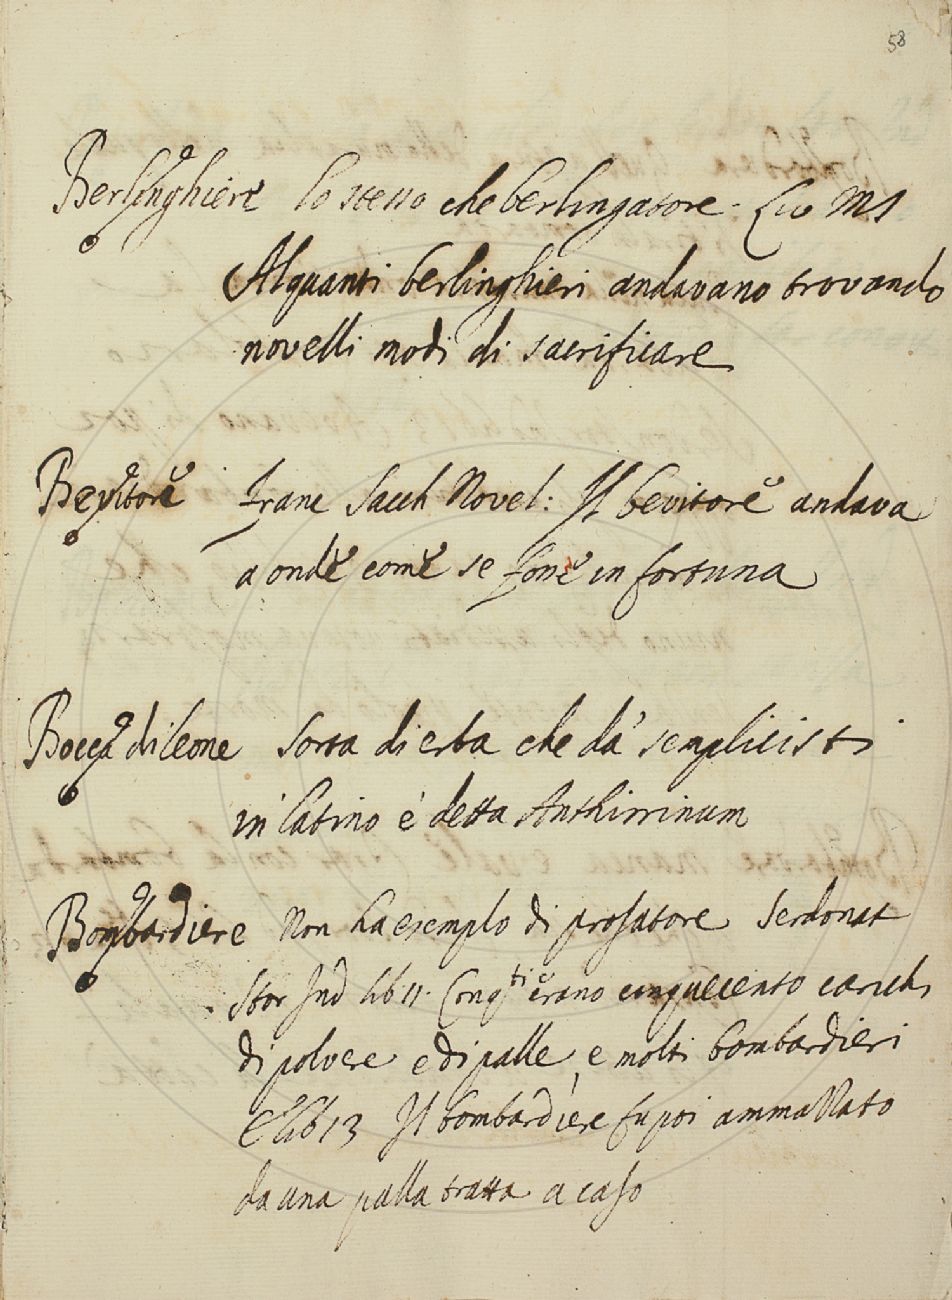 58
Berlinghiere lo stesso che berlingatore. Liv MS
Alquanti berlinghieri andavano trovando
novelli modi di sacrificare
Bevitore Franc Sacch Novel: Il bevitore andava
a onde come se fosse in fortuna
Bocca di leone sorta di erba che da' semplicisti
in latino è detta Anthirrinum
Bombardiere Non ha esemplo di prosatore Serdonat
Stor Ind lib 11. Con q.ti erano cinquecento carichi
di polvere e di palle, e molti bombardieri
E lib 13 Il bombardiere fu poi ammazzato
da una palla tratta a caso